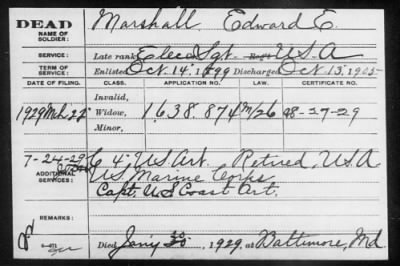 DEAD
NAME OF SOLDIER:
Marshall, Edward E.
SERVICE:
Late rank Elec. Sgt. Regt U.S.A
TERM OF SERVICE:
Enlisted Oct. 14, 1899 Discharged Oct 13, 1905
DATE OF FILING. CLASS. APPLICATION NO. LAW. CERTIFICATE NO.
Invalid,
1929 Mch 22 Widow, 1638.874 M/26 8-27-29
Minor,
7-24-29 C 4" U.S. Art. Retired, U.S.A
ADDITIONAL SERVICES:
U.S. Marine Corps
Capt. U.S Coast Art.
REMARKS:
Died Jany 30, 1929, at Baltimore, Md